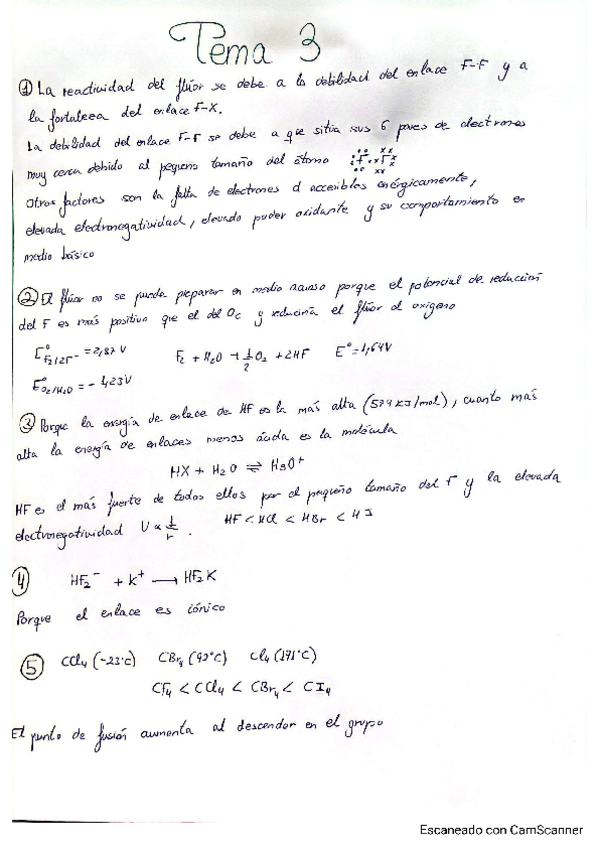 Tema 3
① La reactividad del flúor se debe a la debilidad del enlace F-F y a
la fortaleza del enlace F-X.
La debilidad del enlace F-F se debe a que sitúa sus 6 pares de electrones
muy cerca debido al pequeño tamaño del átomo
Otros factores son la falta de electrones d accesibles enérgicamente,
elevada electronegatividad, elevado poder oxidante y su comportamiento en
medio básico
② El flúor no se puede preparar en medio acuoso porque el potencial de reducción
del F es más positivo que el del O₂ y reduciría el flúor al oxígeno
E°F₂/2F⁻ = 2,87 V F₂ + H₂O → 1/2 O₂ + 2HF E° = 1,64V
E°O₂/H₂O = - 1,23V
③ Porque la energía de enlace de HF es la más alta (574 KJ/mol), cuanto más
alta la energía de enlaces menos ácida es la molécula
HX + H₂O ⇌ H₃O⁺
HF es el más fuerte de todos ellos por el pequeño tamaño del F y la elevada
electronegatividad U ∝ 1/r. HF < HCl < HBr < HI
④ HF₂⁻ + K⁺ → HF₂K
Porque el enlace es iónico
⑤ CCl₄ (-23°C) CBr₄ (92°C) CI₄ (171°C)
CF₄ < CCl₄ < CBr₄ < CI₄
El punto de fusión aumenta al descender en el grupo
Escaneado con CamScanner